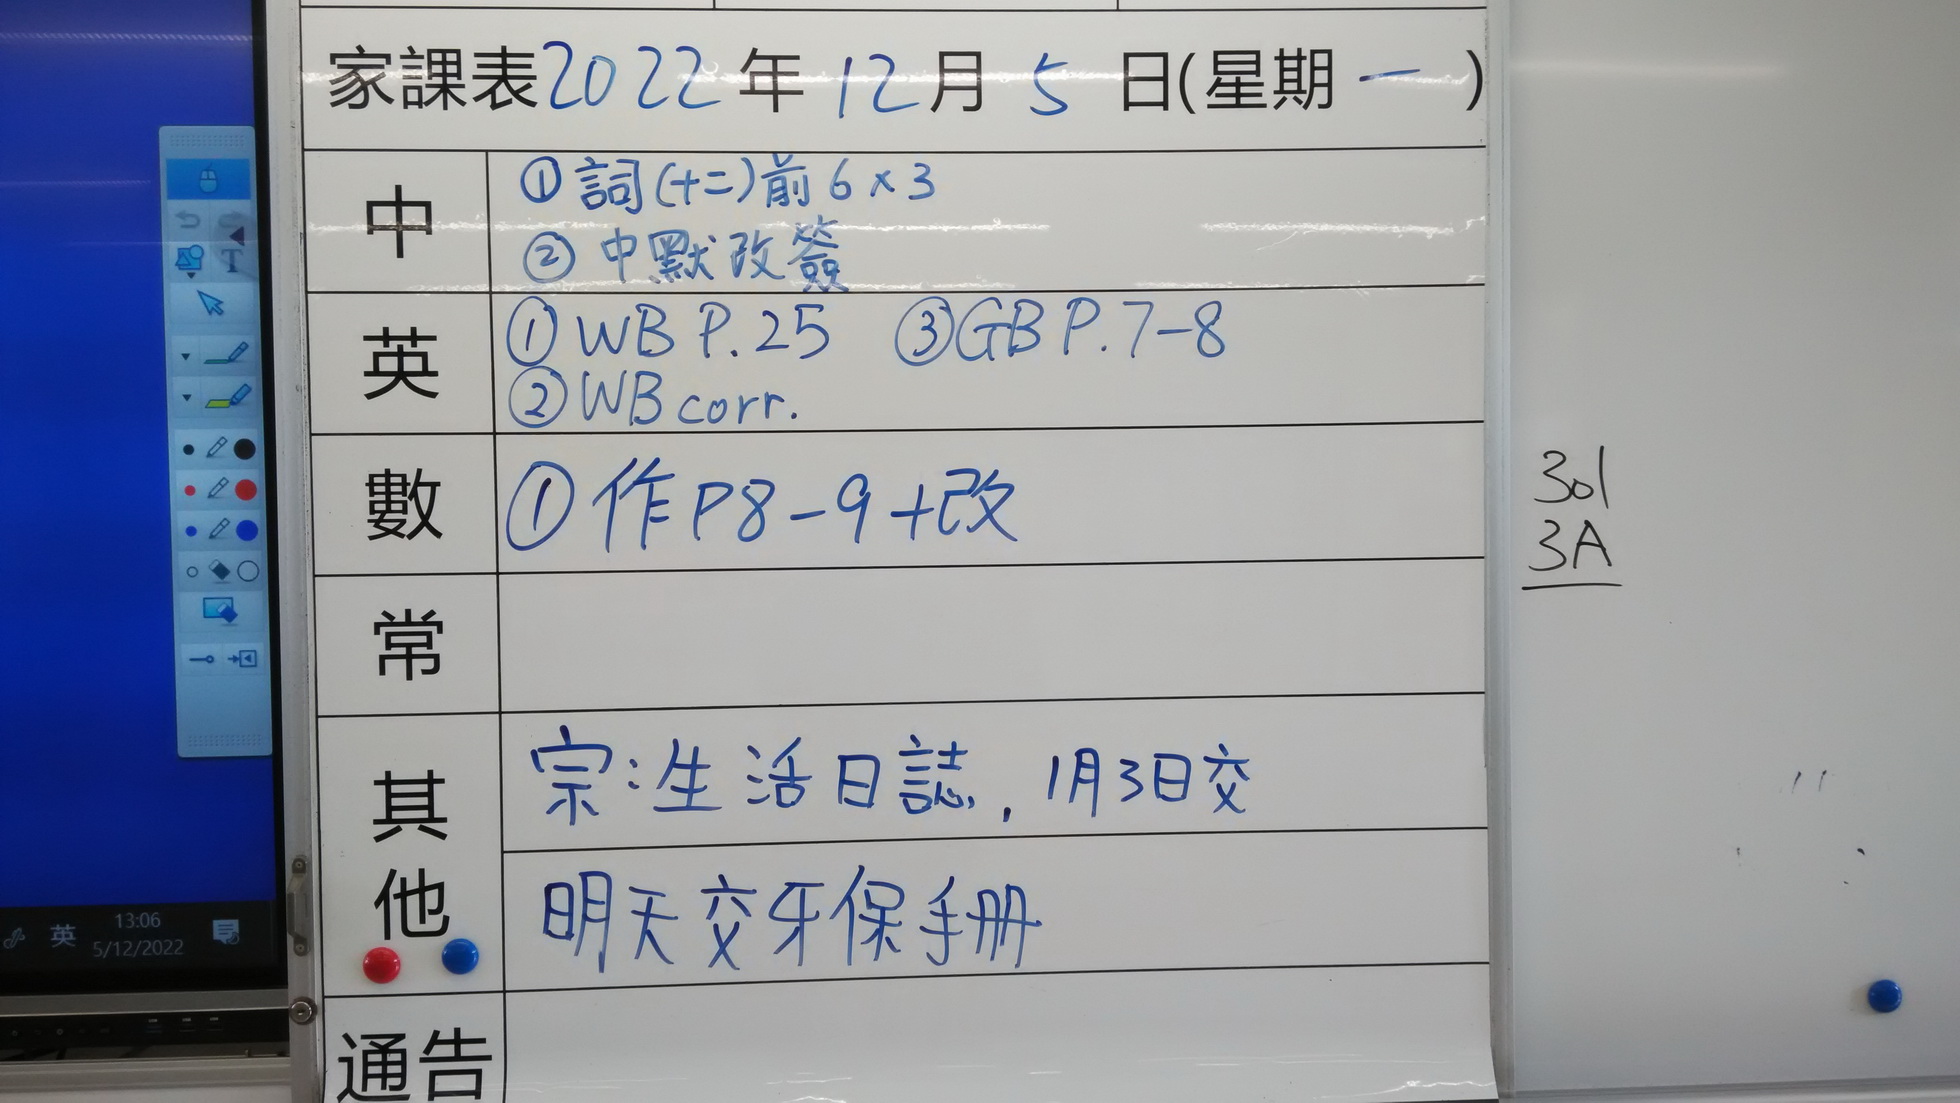 家課表2022年12月5日(星期一)
中
①詞(十二)前6×3
②中默改簽
英
①WB P.25 ③GB P.7-8
②WB corr.
數
①作P8-9+改
常
其他
宗:生活日誌,1月3日交
明天交牙保手冊
通告
301
3A
T
英
13:06
5/12/2022